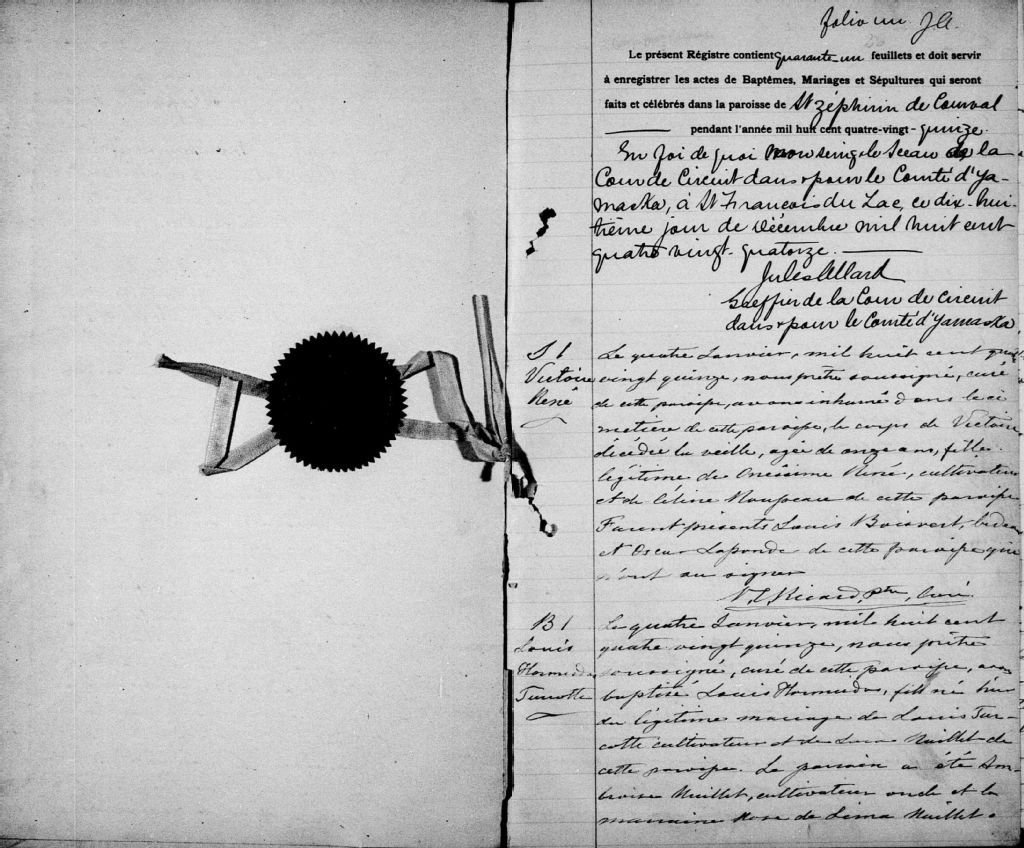 folio un J.A.
Le présent Régistre contient quarante-un feuillets et doit servir
à enregistrer les actes de Baptêmes, Mariages et Sépultures qui seront
faits et célébrés dans la paroisse de St Zéphirin de Courval
pendant l'année mil huit cent quatre-vingt-quinze.
En foi de quoi mon seing & le Sceau de la
Cour de Circuit dans & pour le Comté d'Ya-
maska, à St François du Lac, ce dix-hui-
tième jour de Décembre mil huit cent
quatre vingt-quatorze.
Jules Allard
Greffier de la Cour de Circuit
dans & pour le Comté d'Yamaska.
S 1
Victoire
René
Le quatre Janvier, mil huit cent quatre
vingt quinze, nous prêtre soussigné, curé
de cette paroisse, avons inhumé dans le ci
metière de cette paroisse, le corps de Victoire
décédée la veille, agée de onze ans, fille
légitime de Onésime René, cultivateur
et de Céline Rousseau de cette paroisse
Furent présents Louis Boisvert, bedeau
et Oscar Laponde de cette paroisse qui
n'ont su signer
Ricard, ptre, Curé
B 1
Louis
Hormisdas
Turcotte
Le quatre Janvier, mil huit cent
quatre vingt quinze, nous prêtre
soussigné, curé de cette paroisse, avons
baptisé Louis Hormisdas, fils né hier
du légitime mariage de Louis Tur-
cotte cultivateur et de Houllet de
cette paroisse. Le parrain a été Am-
broise Houllet, cultivateur oncle et la
marraine Rose de Lima Houllet